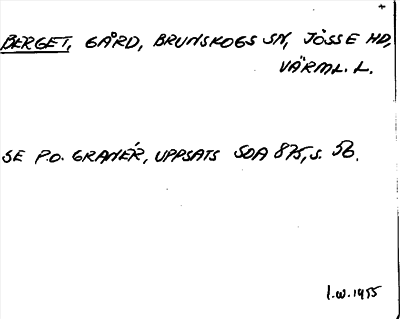 BERGET, GÅRD, BRUNSKOGS SN, JÖSSE HD,
VÄRML. L.
SE P.O. GRANÉR, UPPSATS SOA 875, S. 56.
I.W. 1955